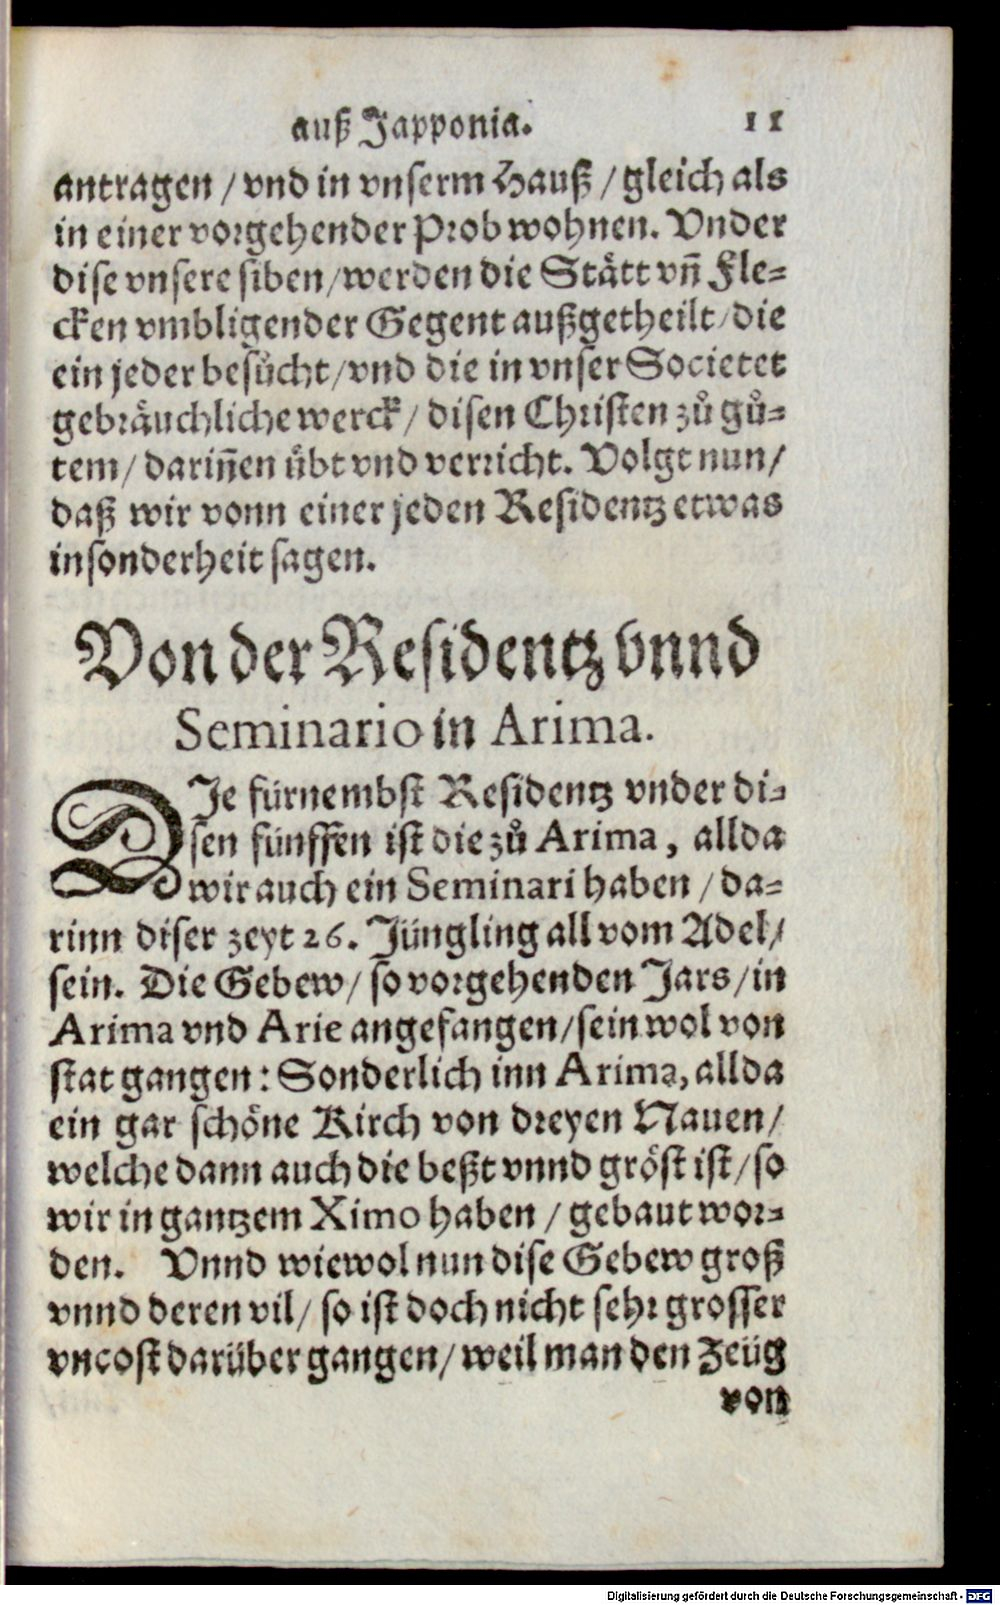 auß Japponia. 11
antragen / vnd in vnserm Hauß / gleich als
in einer vorgehender Prob wohnen. Vnder
dise vnsere siben / werden die Stätt vñ Fle=
cken vmbligender Gegent außgetheilt / die
ein jeder besůcht / vnd die in vnser Societet
gebräuchliche werck / disen Christen zů gů=
tem / dariñen übt vnd verricht. Volgt nun /
daß wir vonn einer jeden Residentz etwas
insonderheit sagen.
Von der Residentz vnnd
Seminario in Arima.
DJe fürnembst Residentz vnder di=
sen fünffen ist die zů Arima, allda
wir auch ein Seminari haben / da=
rinn diser zeyt 26. Jüngling all vom Adel /
sein. Die Gebew / so vorgehenden Jars / in
Arima vnd Arie angefangen / sein wol von
stat gangen: Sonderlich inn Arima, allda
ein gar schöne Kirch von dreyen Nauen /
welche dann auch die beßt vnnd gröst ist / so
wir in gantzem Ximo haben / gebaut wor=
den. Vnnd wiewol nun dise Gebew groß
vnnd deren vil / so ist doch nicht sehr grosser
vncost darüber gangen / weil man den Zeüg
von
Digitalisierung gefördert durch die Deutsche Forschungsgemeinschaft - DFG